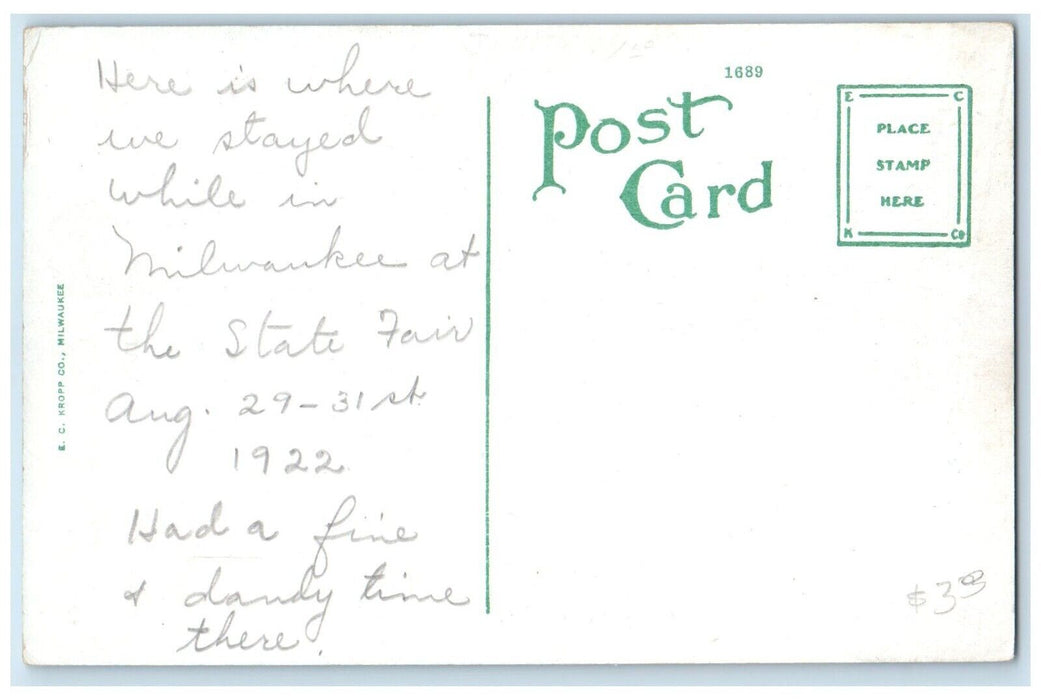 Here is where
we stayed
while in
Milwaukee at
the State Fair
Aug. 29-31st
1922
Had a fine
& dandy time
there.
E. C. KROPP CO., MILWAUKEE
1689
Post
Card
E C
PLACE
STAMP
HERE
K Co
$3.00